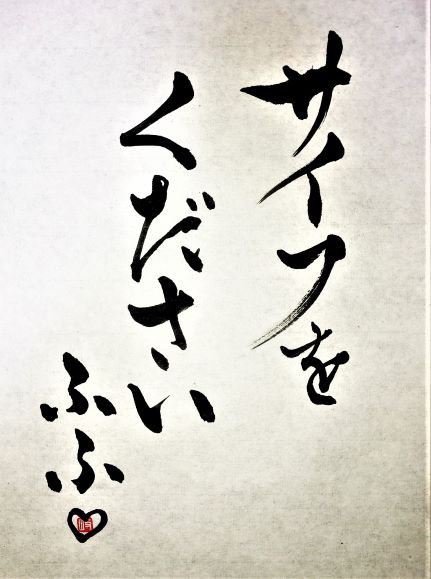 サイフを
ください
ふふ♡